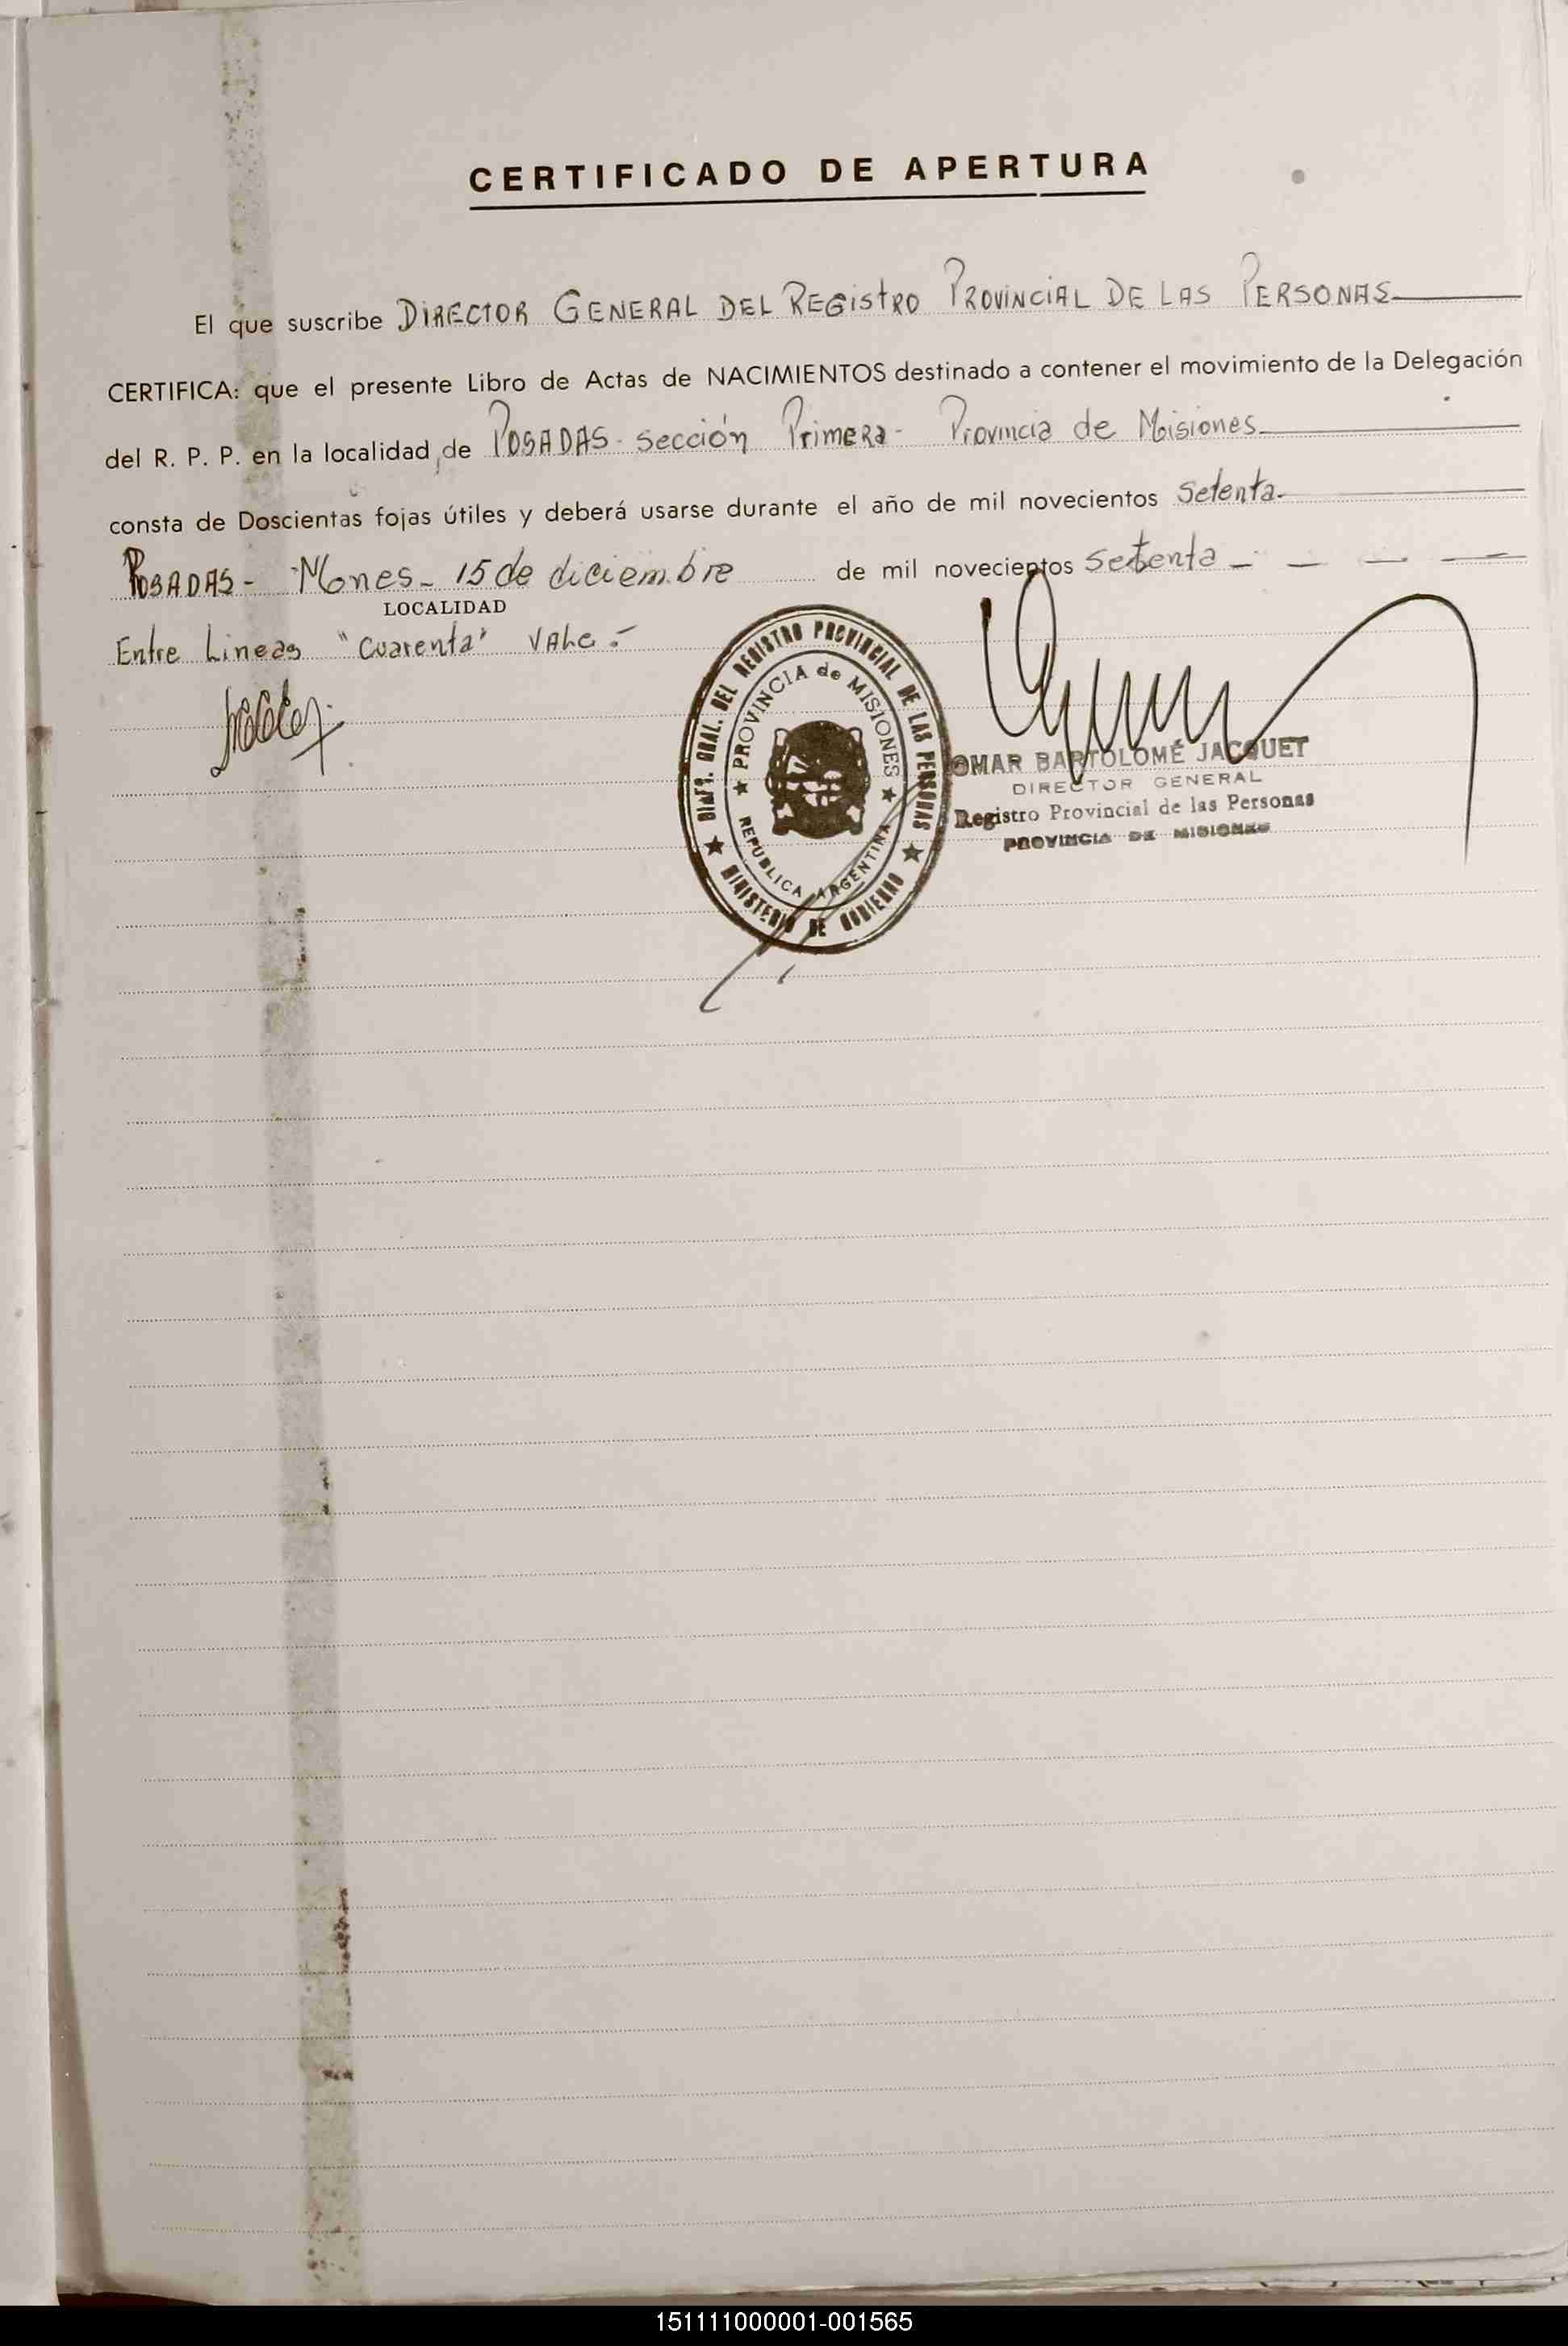 CERTIFICADO DE APERTURA
El que suscribe DIRECTOR GENERAL DEL REGistRO PROVINCIAL DE LAS PERSONAS
CERTIFICA: que el presente Libro de Actas de NACIMIENTOS destinado a contener el movimiento de la Delegación
del R. P. P. en la localidad de POSADAS - sección Primera - Provincia de Misiones
consta de Doscientas fojas útiles y deberá usarse durante el año de mil novecientos Setenta.
POSADAS - Mones - 15 de diciembre de mil novecientos Setenta
LOCALIDAD
Entre Lineas "Cuarenta" VALe.-
DIREC. GRAL. DEL REGISTRO PROVINCIAL DE LAS PERSONAS
PROVINCIA de MISIONES
REPUBLICA ARGENTINA
MINISTERIO DE GOBIERNO
OMAR BARTOLOMÉ JACQUET
DIRECTOR GENERAL
Registro Provincial de las Personas
PROVINCIA DE MISIONES
151111000001-001565